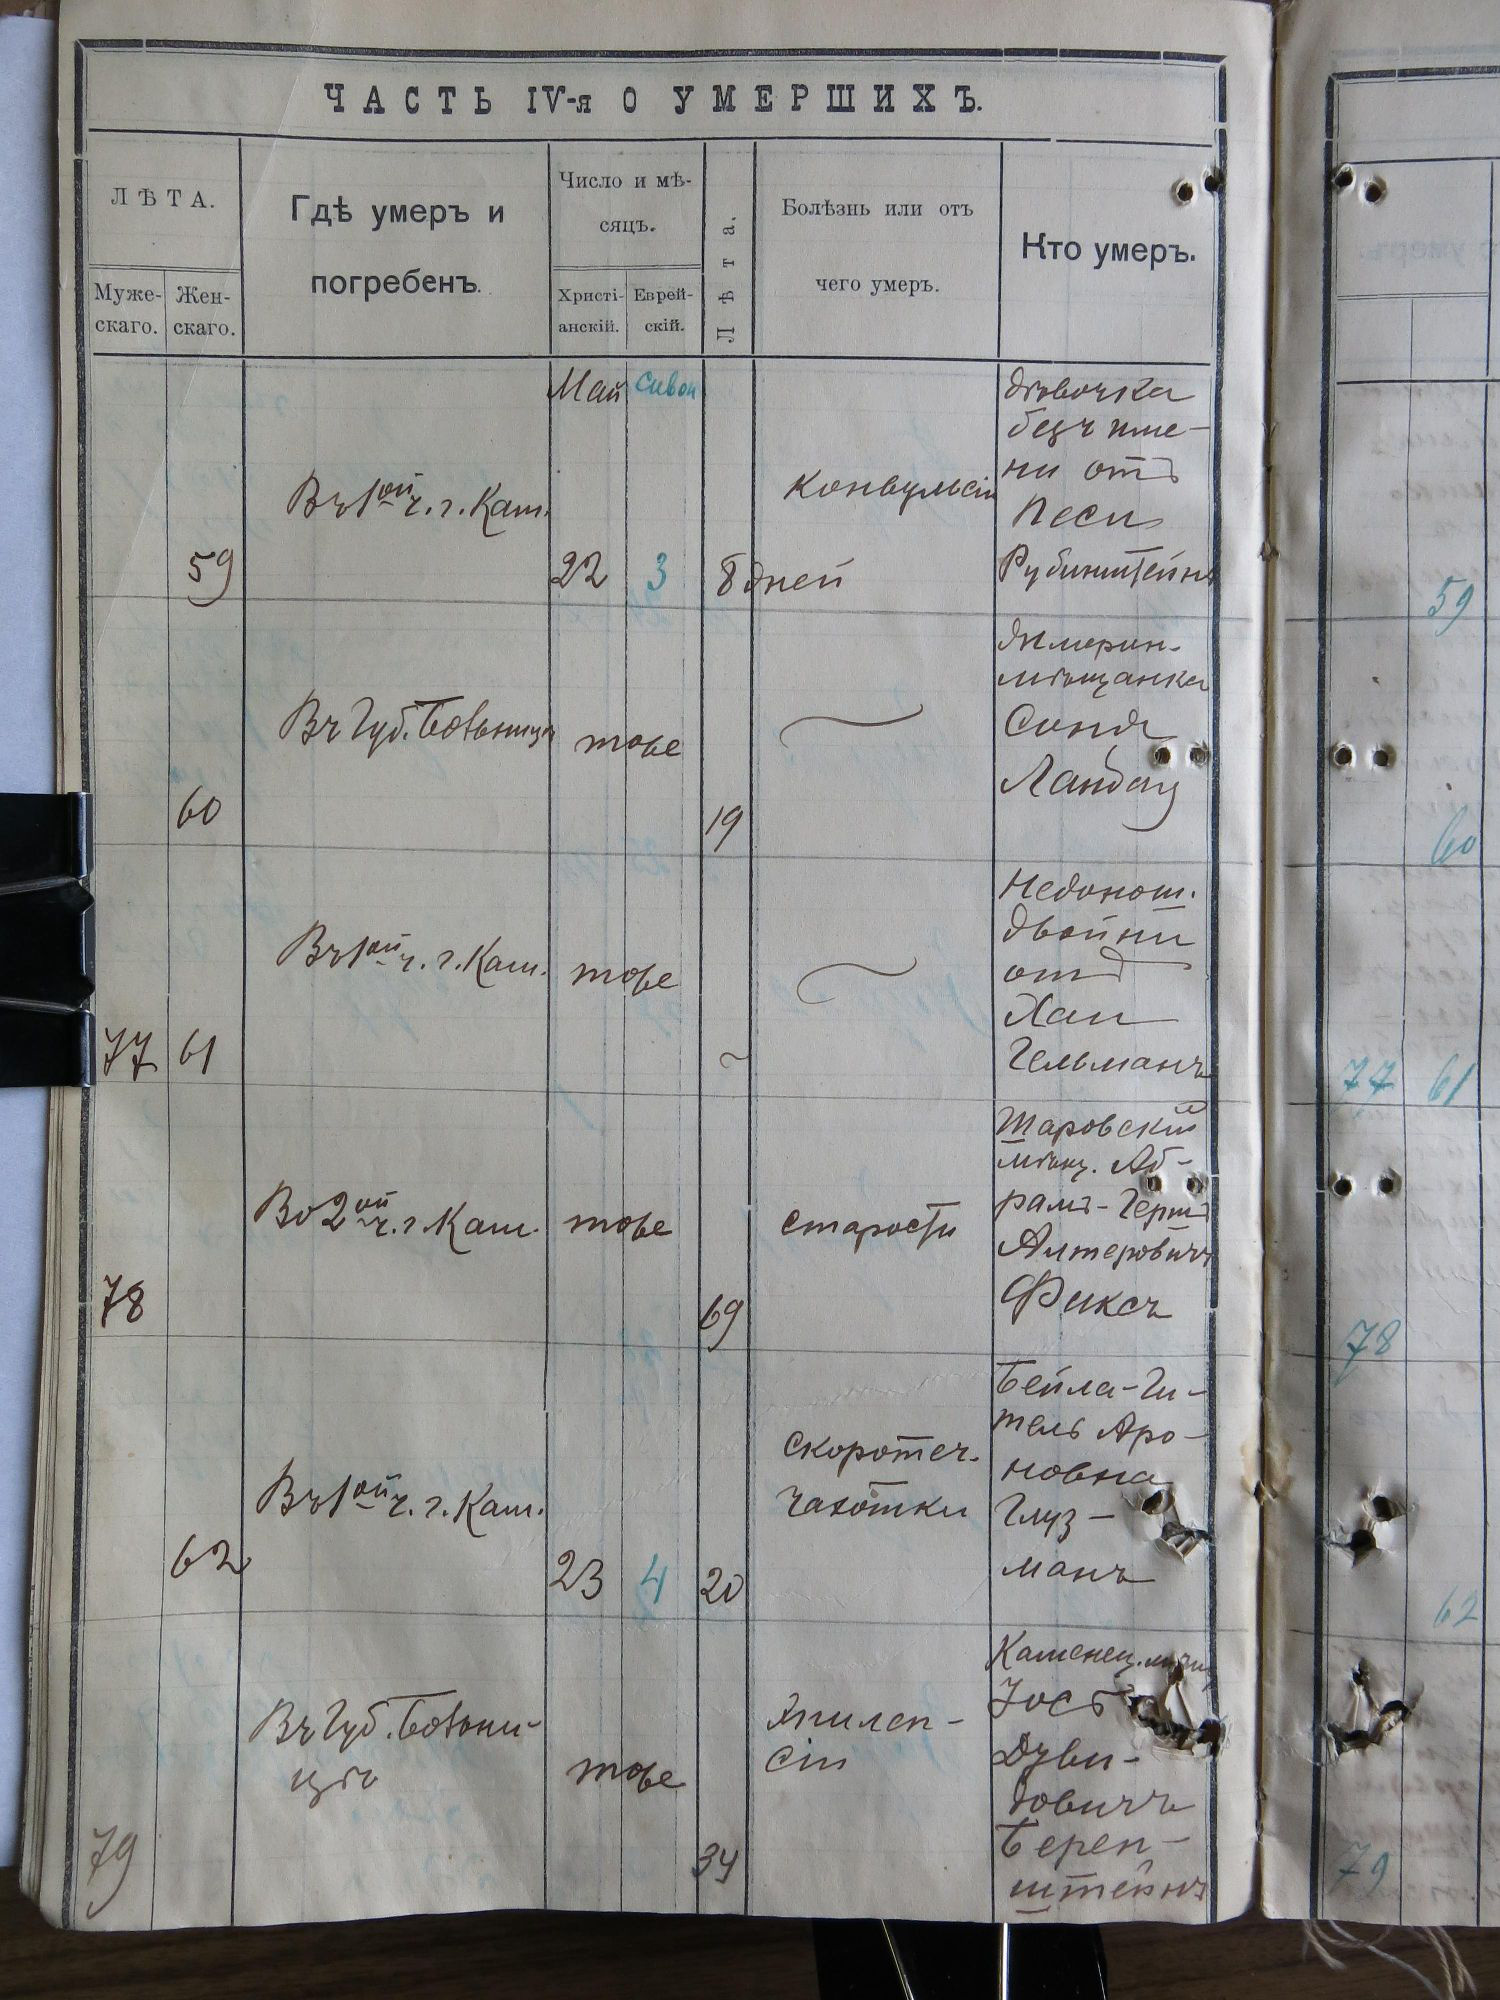 ЧАСТЬ IV-я О УМЕРШИХЪ.
ЛѢТА.
Муже-
скаго.
Жен-
скаго.
Гдѣ умеръ и
погребенъ.
Число и мѣ-
сяцъ.
Христі-
анскій.
Еврей-
скій.
Лѣта.
Болѣзнь или отъ
чего умеръ.
Кто умеръ.
59
Въ 1ой ч. г. Кам.
Май
22
Сивон
3
8 дней
Конвульсіи
Дѣвочка
безъ име-
ни отъ
Песи
Рубинштейнъ
60
Въ Губ. Больницѣ
тоже
19
мѣщанка
Соня
Ландау
77
61
Въ 1ой ч. г. Кам.
тоже
Недонош.
двойни
отъ
Хаи
Гельманъ
78
Во 2ой ч. г. Кам.
тоже
69
старости
Шаровскій
мѣщ. Аб-
рамъ-Гершъ
Алтеровичъ
Фиксъ
62
Въ 1ой ч. г. Кам.
23
4
20
скоротеч.
чахотки
Бейла-Ги-
тель Аро-
новна
Глуз-
манъ
79
Въ Губ. Больни-
цѣ
тоже
34
Эпилеп-
сіи
Каменец. мѣщ.
Дуви-
довичъ
Берен-
штейнъ
59
60
77
61
78
62
79